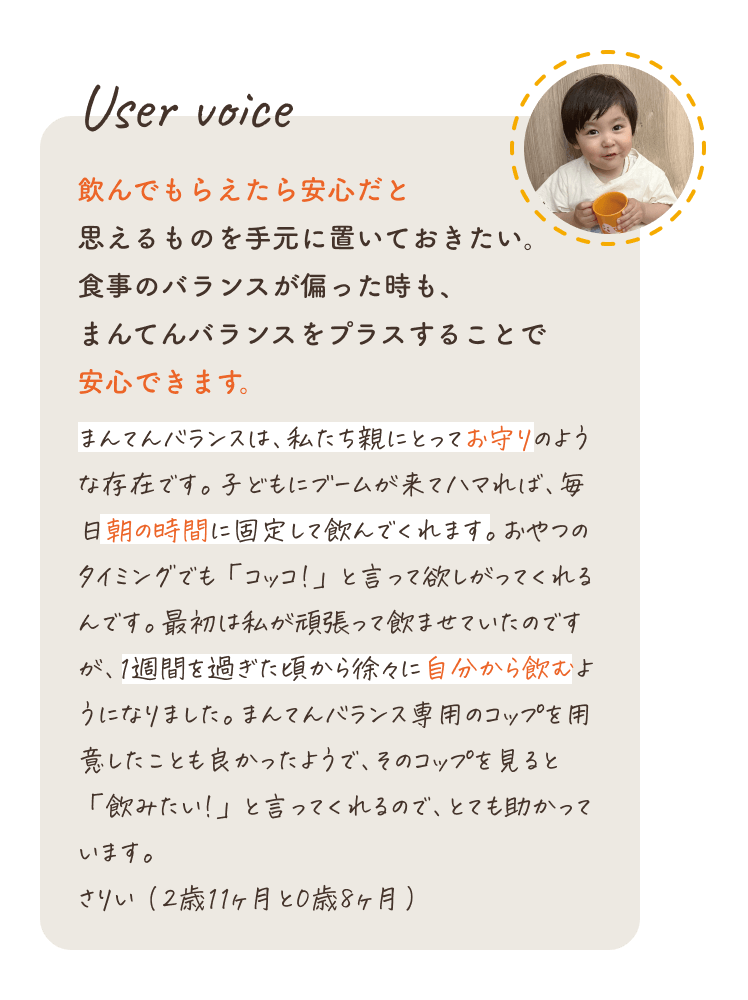 User voice
飲んでもらえたら安心だと
思えるものを手元に置いておきたい。
食事のバランスが偏った時も、
まんてんバランスをプラスすることで
安心できます。
まんてんバランスは、私たち親にとってお守りのよう
な存在です。子どもにブームが来てハマれば、毎
日朝の時間に固定して飲んでくれます。おやつの
タイミングでも「コッコ!」と言って欲しがってくれる
んです。最初は私が頑張って飲ませていたのです
が、1週間を過ぎた頃から徐々に自分から飲むよ
うになりました。まんてんバランス専用のコップを用
意したことも良かったようで、そのコップを見ると
「飲みたい!」と言ってくれるので、とても助かって
います。
さりい(2歳11ヶ月と0歳8ヶ月)